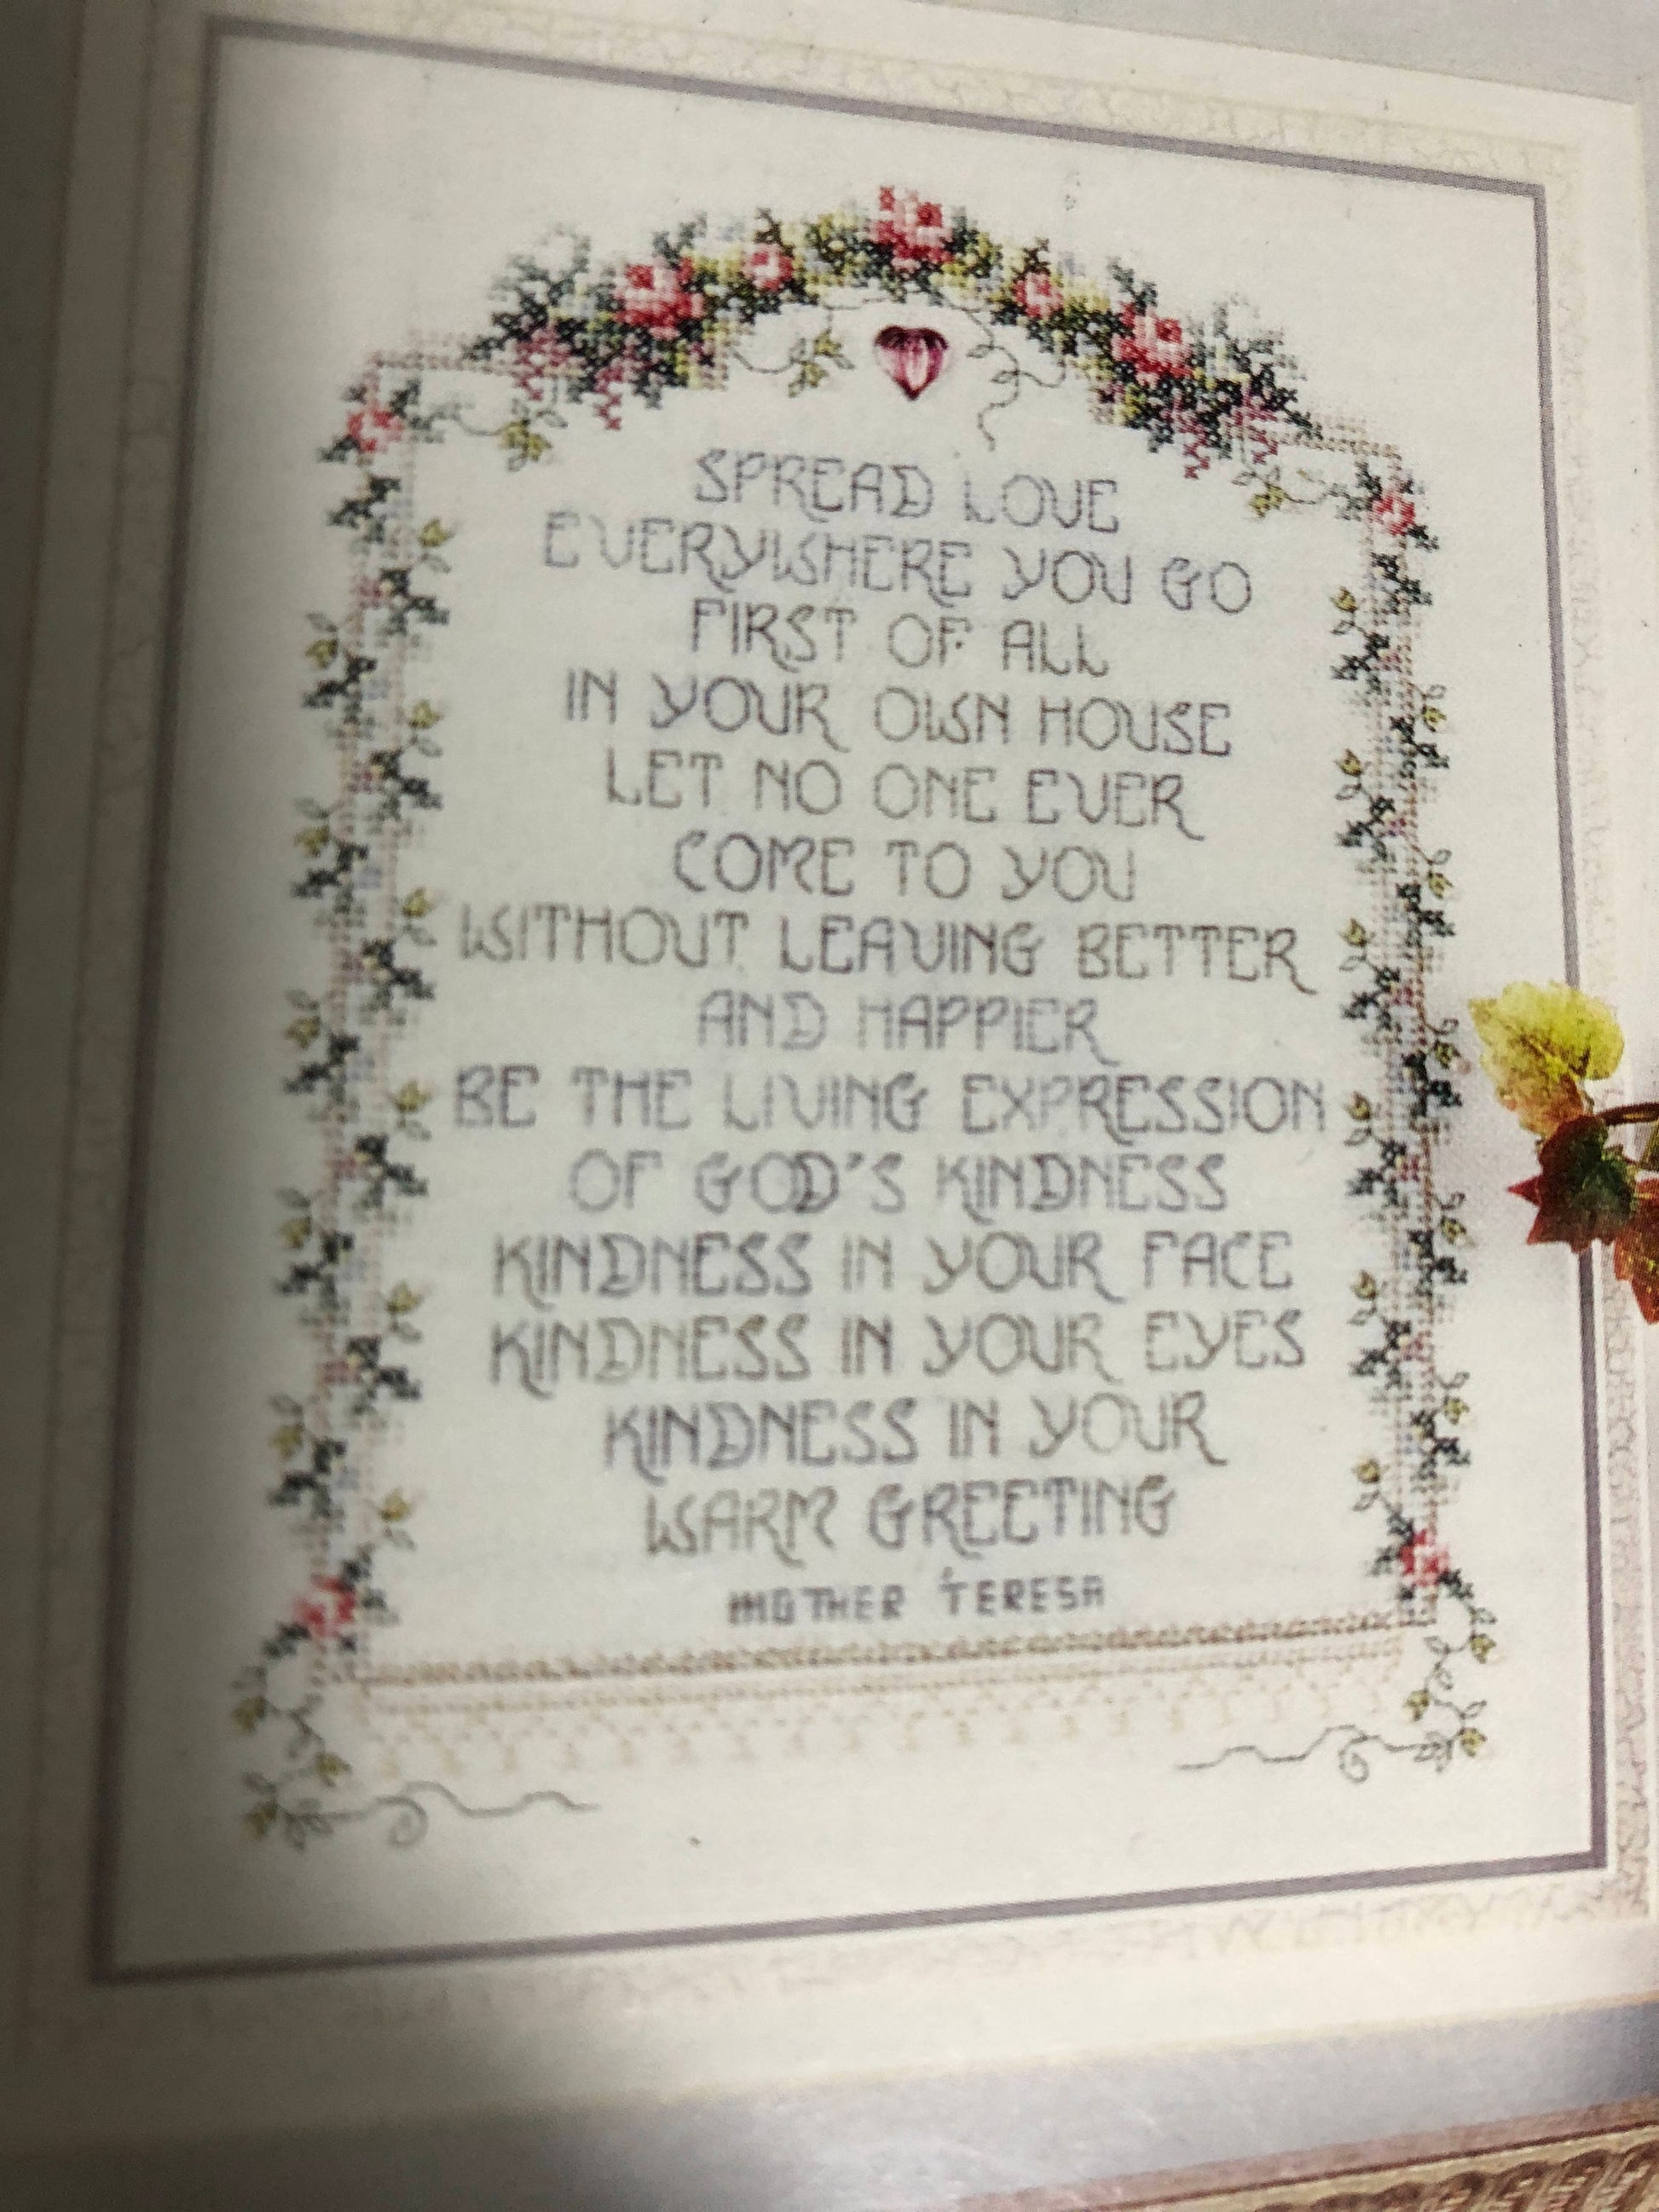 SPREAD LOVE
EVERYWHERE YOU GO
FIRST OF ALL
IN YOUR OWN HOUSE
LET NO ONE EVER
COME TO YOU
WITHOUT LEAVING BETTER
AND HAPPIER
BE THE LIVING EXPRESSION
OF GOD'S KINDNESS
KINDNESS IN YOUR FACE
KINDNESS IN YOUR EYES
KINDNESS IN YOUR
WARM GREETING
MOTHER TERESA